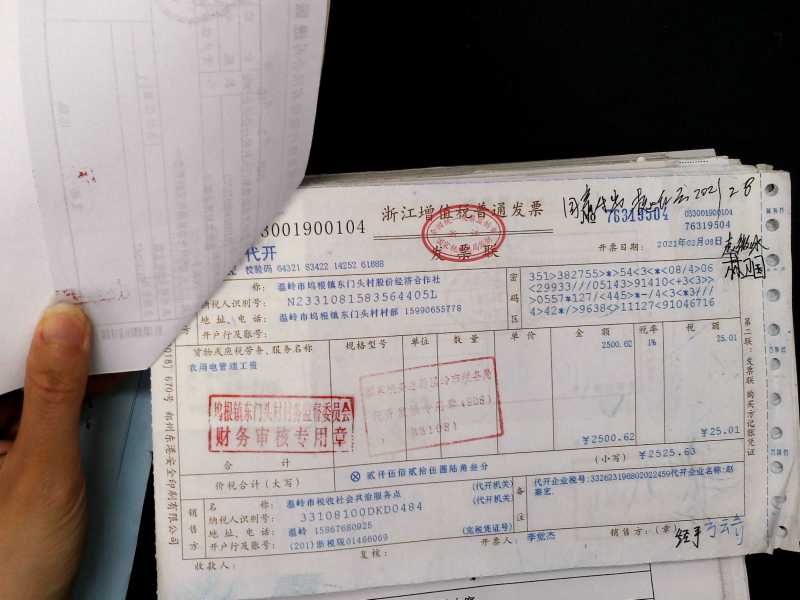 3001900104
浙江增值税普通发票
76319504
033001900104
76319504
代开
校验码 64321 83422 14252 61888
发票联
开票日期: 2021年02月08日
称: 温岭市坞根镇东门头村股份经济合作社
纳税人识别号: N2331081583564405L
地址、电话: 温岭市坞根镇东门头村村部 15990655778
开户行及账号:
密码区
351>382755>*>54<3<*<08/4>06
<29933///05143>91410<+3<3>>
>0557*127/<445>*-/4<3<*3///
4>42*/>9638<>11127<91046716
货物或应税劳务、服务名称
规格型号
单位
数量
单价
金额
税率
税额
农用电管理工资
2500.62
1%
25.01
坞根镇东门头村村务监督委员会
财务审核专用章
合计
￥2500.62
￥25.01
价税合计(大写)
ⓧ 贰仟伍佰贰拾伍圆陆角叁分
(小写) ￥2525.63
销售方
名称: 温岭市税收社会共治服务点
(代开机关)
纳税人识别号: 33108100DKD0484
(代开机关)
地址、电话: 温岭 15867680925
开户行及账号: (201)浙税银01466069
(完税凭证号)
备注
代开企业税号:332623196802022459代开企业名称:赵
收款人:
复核:
开票人: 李觉杰
销售方: (章)
经手
第二联:发票联 购买方记账凭证
670号 郑州东港安全印刷有限公司